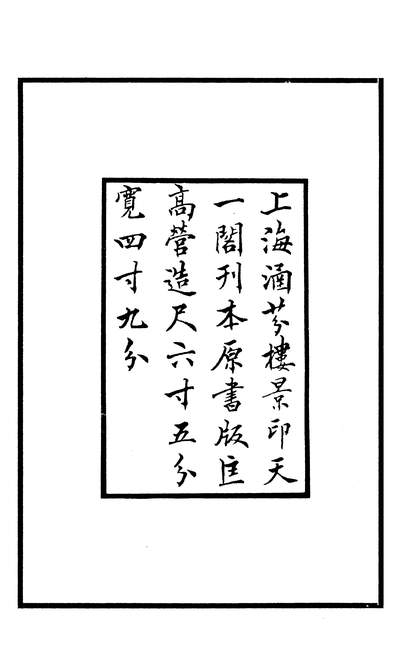 上海涵芬樓景印天
一閣刊本原書版匡
高營造尺六寸五分
寬四寸九分